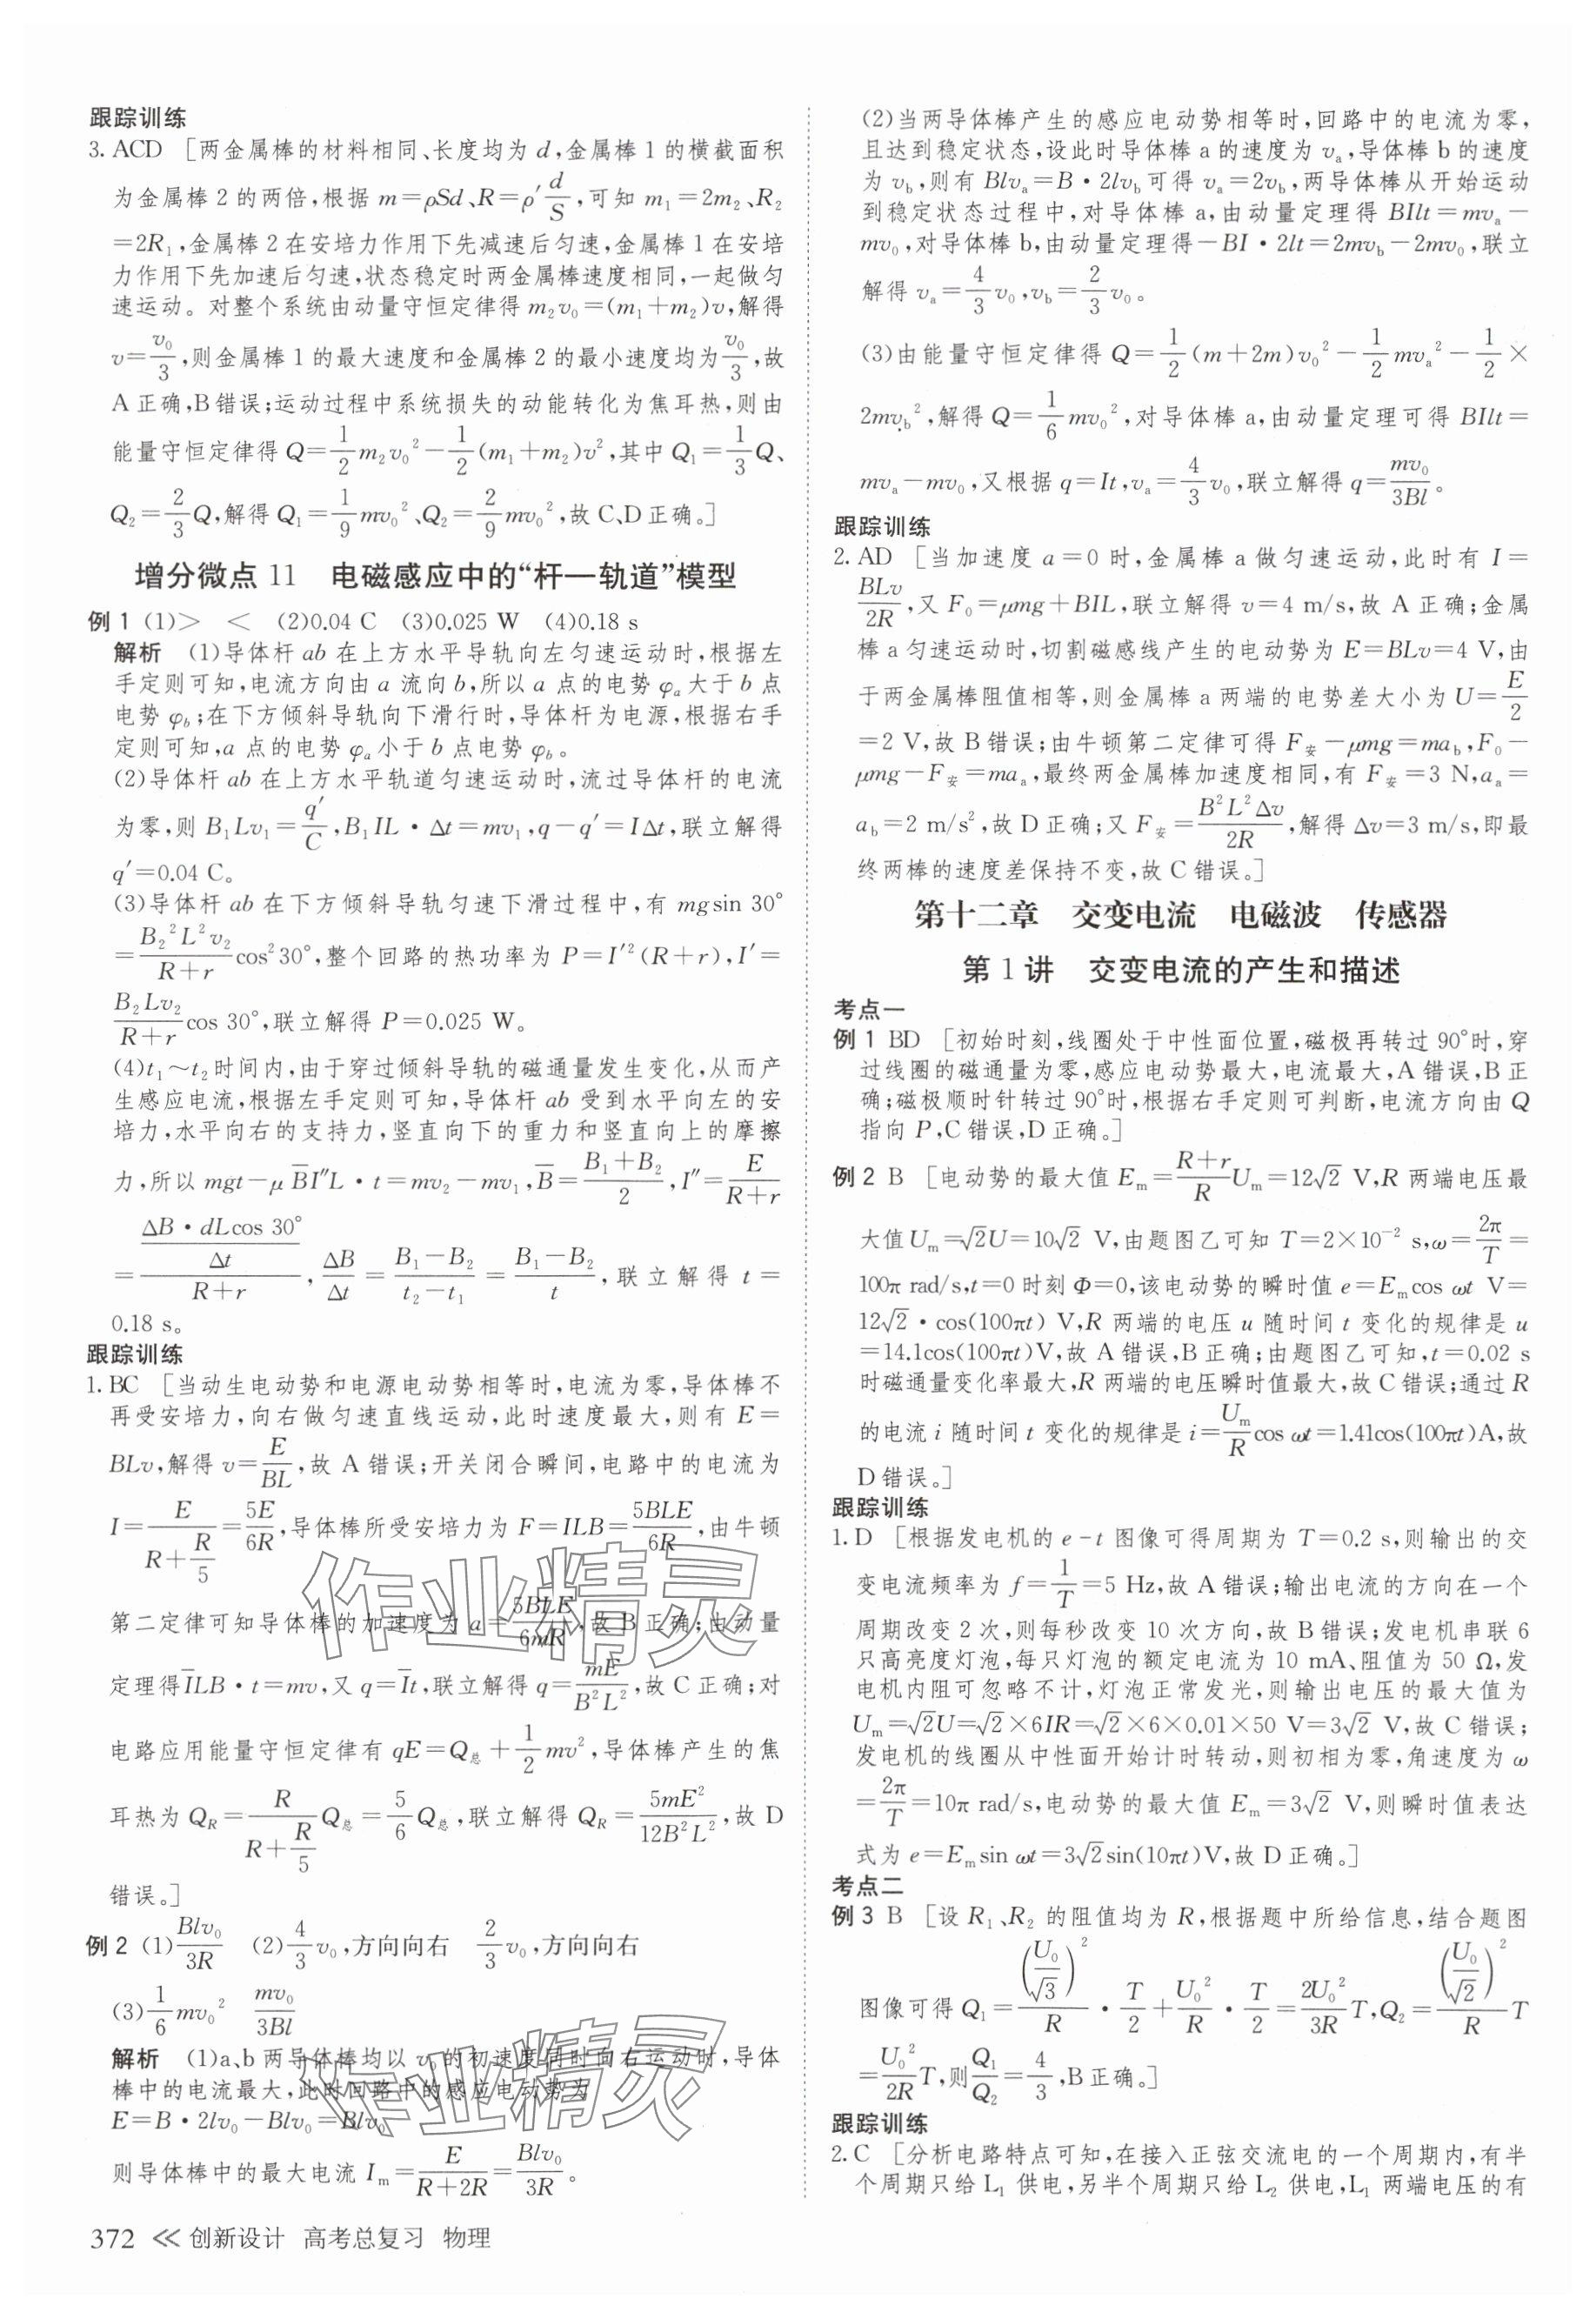 跟踪训练
3. ACD [两金属棒的材料相同、长度均为 d,金属棒 1 的横截面积
为金属棒 2 的两倍,根据 m=ρSd、R=ρ′d/S,可知 m₁=2m₂、R₂
=2R₁,金属棒 2 在安培力作用下先减速后匀速,金属棒 1 在安培
力作用下先加速后匀速,状态稳定时两金属棒速度相同,一起做匀
速运动。对整个系统由动量守恒定律得 m₂v₀=(m₁+m₂)v,解得
v=v₀/3,则金属棒 1 的最大速度和金属棒 2 的最小速度均为v₀/3,故
A 正确,B 错误;运动过程中系统损失的动能转化为焦耳热,则由
能量守恒定律得 Q=1/2 m₂v₀²-1/2(m₁+m₂)v²,其中 Q₁=1/3 Q、
Q₂=2/3 Q,解得 Q₁=1/9 mv₀²、Q₂=2/9 mv₀²,故 C、D 正确。]
增分微点 11 电磁感应中的“杆—轨道”模型
例 1 (1)> < (2)0.04 C (3)0.025 W (4)0.18 s
解析 (1)导体杆 ab 在上方水平导轨向左匀速运动时,根据左
手定则可知,电流方向由 a 流向 b,所以 a 点的电势 φₐ大于 b 点
电势 φ_b;在下方倾斜导轨向下滑行时,导体杆为电源,根据右手
定则可知,a 点的电势 φₐ小于 b 点电势 φ_b。
(2)导体杆 ab 在上方水平轨道匀速运动时,流过导体杆的电流
为零,则 B₁Lv₁=q′/C,B₁IL·Δt=mv₁,q-q′=IΔt,联立解得
q′=0.04 C。
(3)导体杆 ab 在下方倾斜导轨匀速下滑过程中,有 mgsin 30°
=B₂²L²v₂/(R+r) cos²30°,整个回路的热功率为 P=I′²(R+r),I′=
B₂Lv₂/(R+r) cos 30°,联立解得 P=0.025 W。
(4)t₁~t₂时间内,由于穿过倾斜导轨的磁通量发生变化,从而产
生感应电流,根据左手定则可知,导体杆 ab 受到水平向左的安
培力,水平向右的支持力,竖直向下的重力和竖直向上的摩擦
力,所以 mgt-μB̄I″L·t=mv₂-mv₁,B̄=(B₁+B₂)/2,I″=E/(R+r)
=(ΔB·dLcos 30°/Δt)/(R+r),ΔB/Δt=(B₁-B₂)/(t₂-t₁)=(B₁-B₂)/t,联立解得 t=
0.18 s。
跟踪训练
1. BC [当动生电动势和电源电动势相等时,电流为零,导体棒不
再受安培力,向右做匀速直线运动,此时速度最大,则有 E=
BLv,解得 v=E/BL,故 A 错误;开关闭合瞬间,电路中的电流为
I=E/(R+R/5)=5E/6R,导体棒所受安培力为 F=ILB=5BLE/6R,由牛顿
第二定律可知导体棒的加速度为 a=5BLE/6mR,故 B 正确;由动量
定理得ĪLB·t=mv,又 q=Īt,联立解得 q=mE/B²L²,故 C 正确;对
电路应用能量守恒定律有 qE=Q总+1/2 mv²,导体棒产生的焦
耳热为 Q_R=R/(R+R/5) Q总=5/6 Q总,联立解得 Q_R=5mE²/12B²L²,故 D
错误。]
例 2 (1)Blv₀/3R (2)4/3 v₀,方向向右 2/3 v₀,方向向右
(3)1/6 mv₀² mv₀/3Bl
解析 (1)a、b 两导体棒均以 v₀的初速度同时向右运动时,导体
棒中的电流最大,此时回路中的感应电动势为
E=B·2lv₀-Blv₀=Blv₀
则导体棒中的最大电流 Iₘ=E/(R+2R)=Blv₀/3R。
372 << 创新设计 高考总复习 物理
(2)当两导体棒产生的感应电动势相等时,回路中的电流为零,
且达到稳定状态,设此时导体棒 a 的速度为 vₐ,导体棒 b 的速度
为 v_b,则有 Blvₐ=B·2lv_b可得 vₐ=2v_b,两导体棒从开始运动
到稳定状态过程中,对导体棒 a,由动量定理得 BIlt=mvₐ-
mv₀,对导体棒 b,由动量定理得-BI·2lt=2mv_b-2mv₀,联立
解得 vₐ=4/3 v₀,v_b=2/3 v₀。
(3)由能量守恒定律得 Q=1/2(m+2m)v₀²-1/2 mvₐ²-1/2×
2mv_b²,解得 Q=1/6 mv₀²,对导体棒 a,由动量定理可得 BIlt=
mvₐ-mv₀,又根据 q=It,vₐ=4/3 v₀,联立解得 q=mv₀/3Bl。
跟踪训练
2. AD [当加速度 a=0 时,金属棒 a 做匀速运动,此时有 I=
BLv/2R,又 F₀=μmg+BIL,联立解得 v=4 m/s,故 A 正确;金属
棒 a 匀速运动时,切割磁感线产生的电动势为 E=BLv=4 V,由
于两金属棒阻值相等,则金属棒 a 两端的电势差大小为 U=E/2
=2 V,故 B 错误;由牛顿第二定律可得 F安-μmg=ma_b,F₀-
μmg-F安=maₐ,最终两金属棒加速度相同,有 F安=3 N,aₐ=
a_b=2 m/s²,故 D 正确;又 F安=B²L²Δv/2R,解得 Δv=3 m/s,即最
终两棒的速度差保持不变,故 C 错误。]
第十二章 交变电流 电磁波 传感器
第 1 讲 交变电流的产生和描述
考点一
例 1 BD [初始时刻,线圈处于中性面位置,磁极再转过 90°时,穿
过线圈的磁通量为零,感应电动势最大,电流最大,A 错误,B 正
确;磁极顺时针转过 90°时,根据右手定则可判断,电流方向由 Q
指向 P,C 错误,D 正确。]
例 2 B [电动势的最大值 Eₘ=(R+r)/R Uₘ=12√2 V,R 两端电压最
大值 Uₘ=√2U=10√2 V,由题图乙可知 T=2×10⁻² s,ω=2π/T=
100π rad/s,t=0 时刻 Φ=0,该电动势的瞬时值 e=Eₘcos ωt V=
12√2·cos(100πt) V,R 两端的电压 u 随时间 t 变化的规律是 u
=14.1cos(100πt)V,故 A 错误,B 正确;由题图乙可知,t=0.02 s
时磁通量变化率最大,R 两端的电压瞬时值最大,故 C 错误;通过 R
的电流 i 随时间 t 变化的规律是 i=Uₘ/R cos ωt=1.41cos(100πt)A,故
D 错误。]
跟踪训练
1. D [根据发电机的 e-t 图像可得周期为 T=0.2 s,则输出的交
变电流频率为 f=1/T=5 Hz,故 A 错误;输出电流的方向在一个
周期改变 2 次,则每秒改变 10 次方向,故 B 错误;发电机串联 6
只高亮度灯泡,每只灯泡的额定电流为 10 mA、阻值为 50 Ω,发
电机内阻可忽略不计,灯泡正常发光,则输出电压的最大值为
Uₘ=√2U=√2×6IR=√2×6×0.01×50 V=3√2 V,故 C 错误;
发电机的线圈从中性面开始计时转动,则初相为零,角速度为 ω
=2π/T=10π rad/s,电动势的最大值 Eₘ=3√2 V,则瞬时值表达
式为 e=Eₘsin ωt=3√2sin(10πt)V,故 D 正确。]
考点二
例 3 B [设 R₁、R₂ 的阻值均为 R,根据题中所给信息,结合题图
图像可得 Q₁=(U₀/√3)²/R·T/2+U₀²/R·T/2=2U₀²/3R T,Q₂=(U₀/√2)²/R T
=U₀²/2R T,则Q₁/Q₂=4/3,B 正确。]
跟踪训练
2. C [分析电路特点可知,在接入正弦交流电的一个周期内,有半
个周期只给 L₁ 供电,另半个周期只给 L₂ 供电,L₁ 两端电压的有
作业精灵
作业精灵